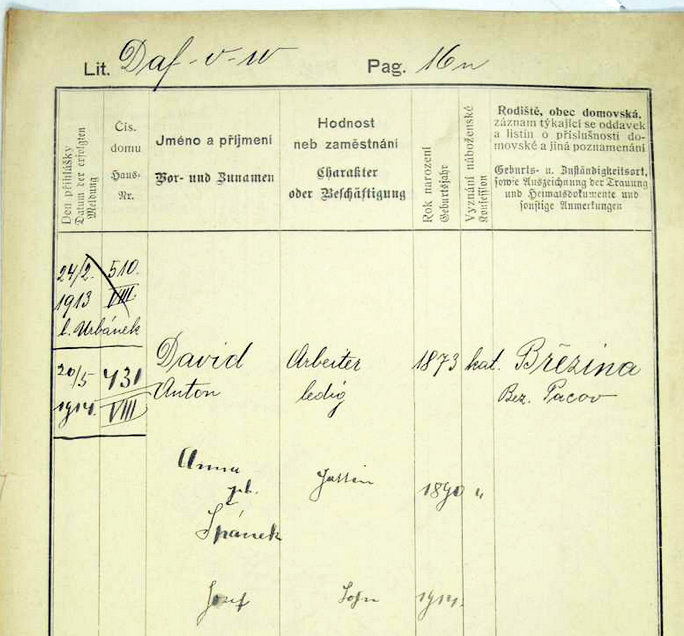 Lit. Daf-v-w Pag. 16
Den přihlášky
Datum der erfolgten
Meldung
Čís.
domu
Haus-
Nr.
Jméno a příjmení
Vor- und Zunamen
Hodnost
neb zaměstnání
Charakter
oder Beschäftigung
Rok narození
Geburtsjahr
Vyznání náboženské
Konfession
Rodiště, obec domovská,
záznam týkající se oddavek
a listin o příslušnosti do-
movské a jiná poznamenání
Geburts- u. Zuständigkeitsort,
sowie Auszeichnung der Trauung
und Heimatsdokumente und
sonstige Anmerkungen
24/2. 510.
1913 VIII
b. Urbánek
20/5 431 David Arbeiter 1873 kat. Březina
1914. VIII Anton ledig Bez. Pacov
Anna Gattin 1890 "
geb.
Špánek
Josef Sohn 1914.